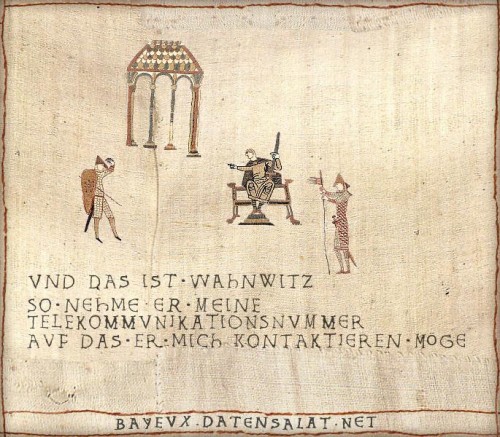 VND DAS IST · WAHNWITZ
SO · NEHME · ER · MEINE
TELEKOMMVNIKATIONSNVMMER
AVF DAS · ER · MICH KONTAKTIEREN · MÖGE
BAYEVX · DATENSALAT · NET